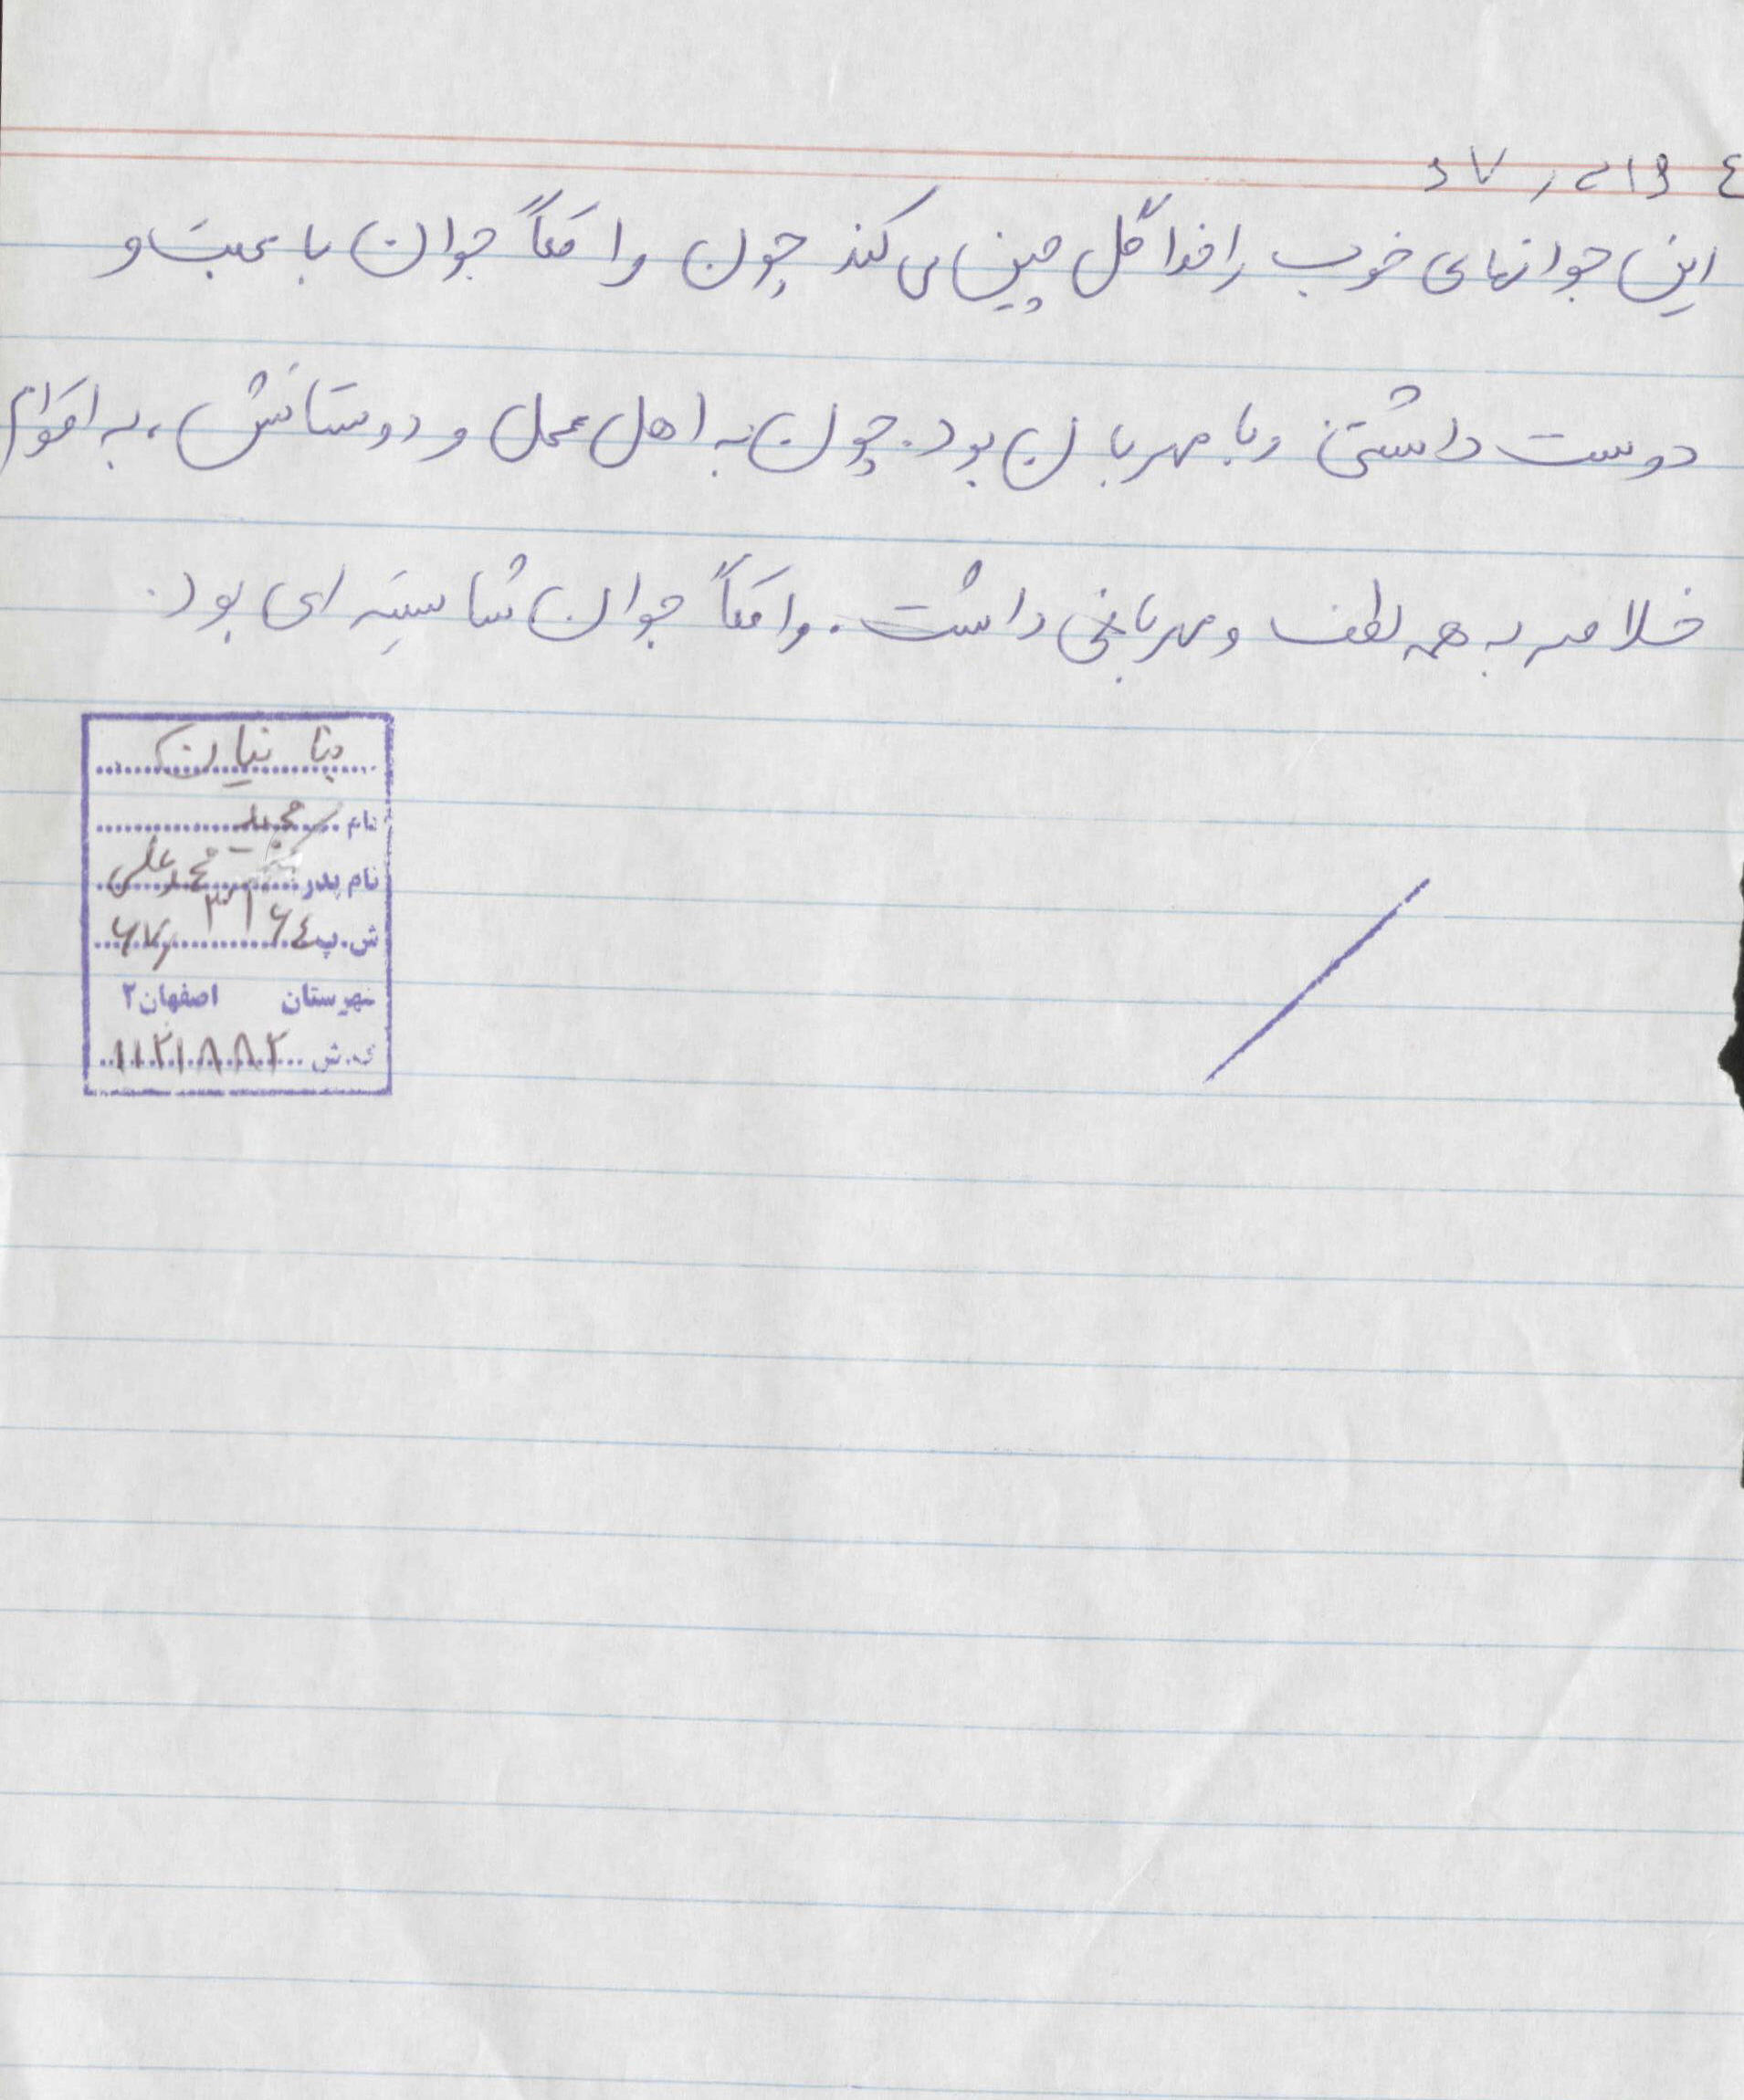 این جوانهای خوب را خدا گل چین می کند چون واقعاً جوان با محبت و
دوست داشتنی و با مهربان بود. چون به اهل محل و دوستانش، به اقوام
خلاصه به همه لطف و مهربانی داشت. واقعاً جوان شایسته ای بود.
بنا نیان
نام مجید
نام پدر محمد علی
ش.پ ۳۱۶٤ ۶۷٫
شهرستان اصفهان ۲
ک.ش ۱۱۲۱۸۸۲